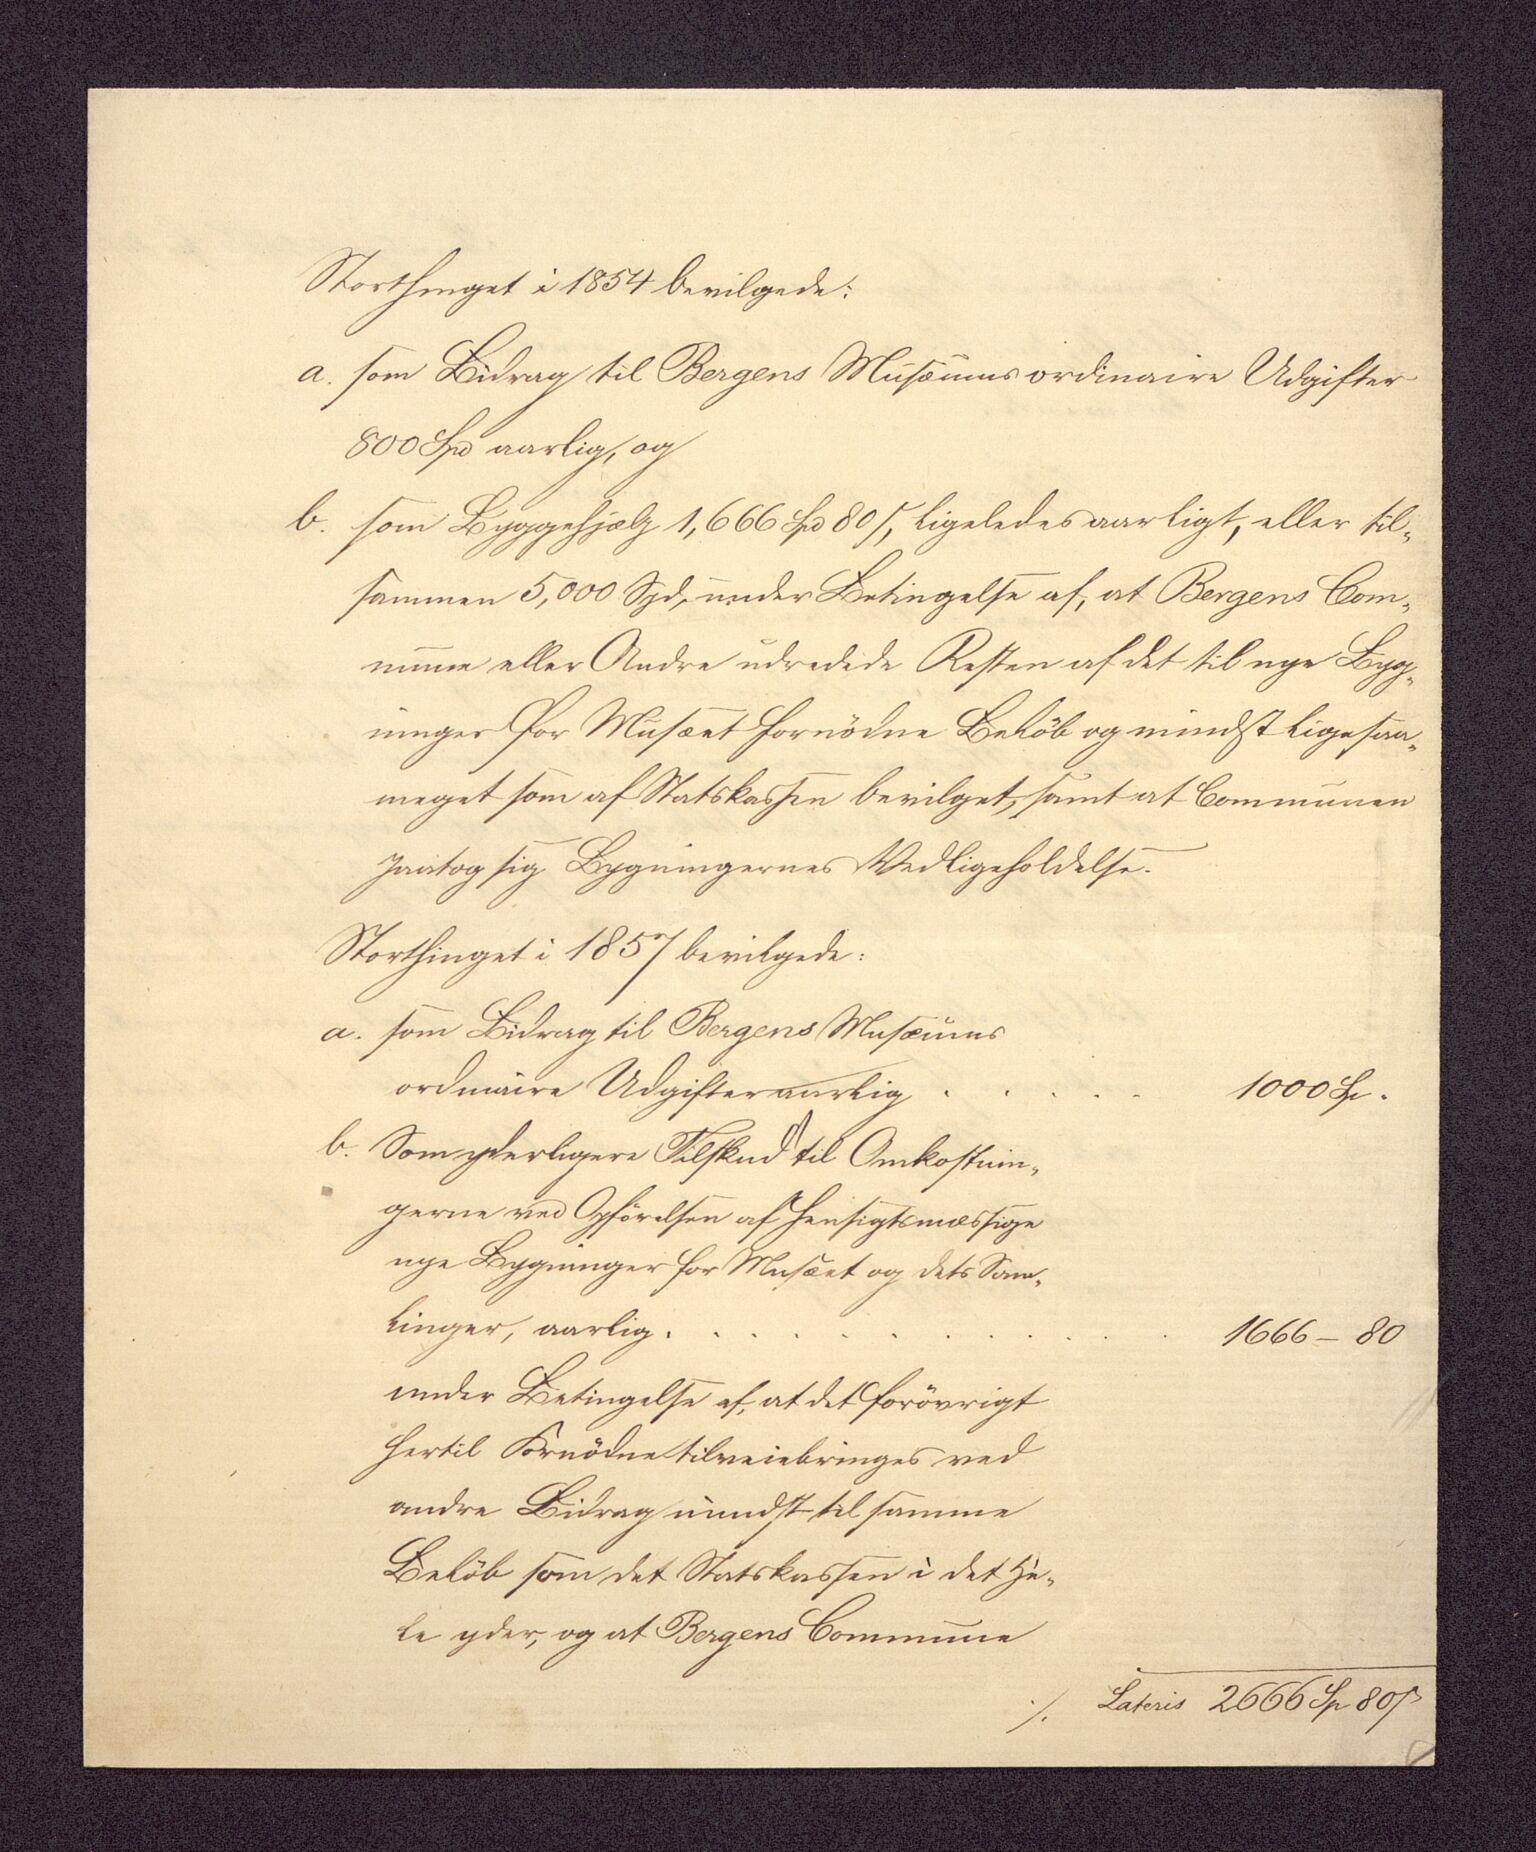 Storthinget i 1854 bevilgede:
a. som Bidrag til Bergens Musæums ordinaire Udgifter
800 Spd aarlig, og
b. som Byggehjælp 1,666 Spd 80 ß, ligeledes aarligt, eller til-
sammen 5,000 Spd, under Betingelse af, at Bergens Com-
mune eller Andre udredede Resten af det til nye Byg-
ninger for Musæet fornödne Belöb og mindst ligesaa-
meget som af Statskassen bevilget, samt at Communen
paatog sig Bygningernes Vedligeholdelse.
Storthinget i 1857 bevilgede:
a. som Bidrag til Bergens Musæums
ordinaire Udgifter aarlig . . . . . 1000 Sp.
b. Som yderligere Tilskud til Omkostnin-
gerne ved Opförelsen af hensigtsmæssige
nye Bygninger for Musæet og dets Sam-
linger, aarlig . . . . . . . . . . 1666 – 80
under Betingelse af, at det forövrigt
hertil Fornödne tilveiebringes ved
andre Bidrag mindst til samme
Belöb som det Statskassen i det He-
le yder, og at Bergens Commune
./. Lateris 2666 Sp 80 ß